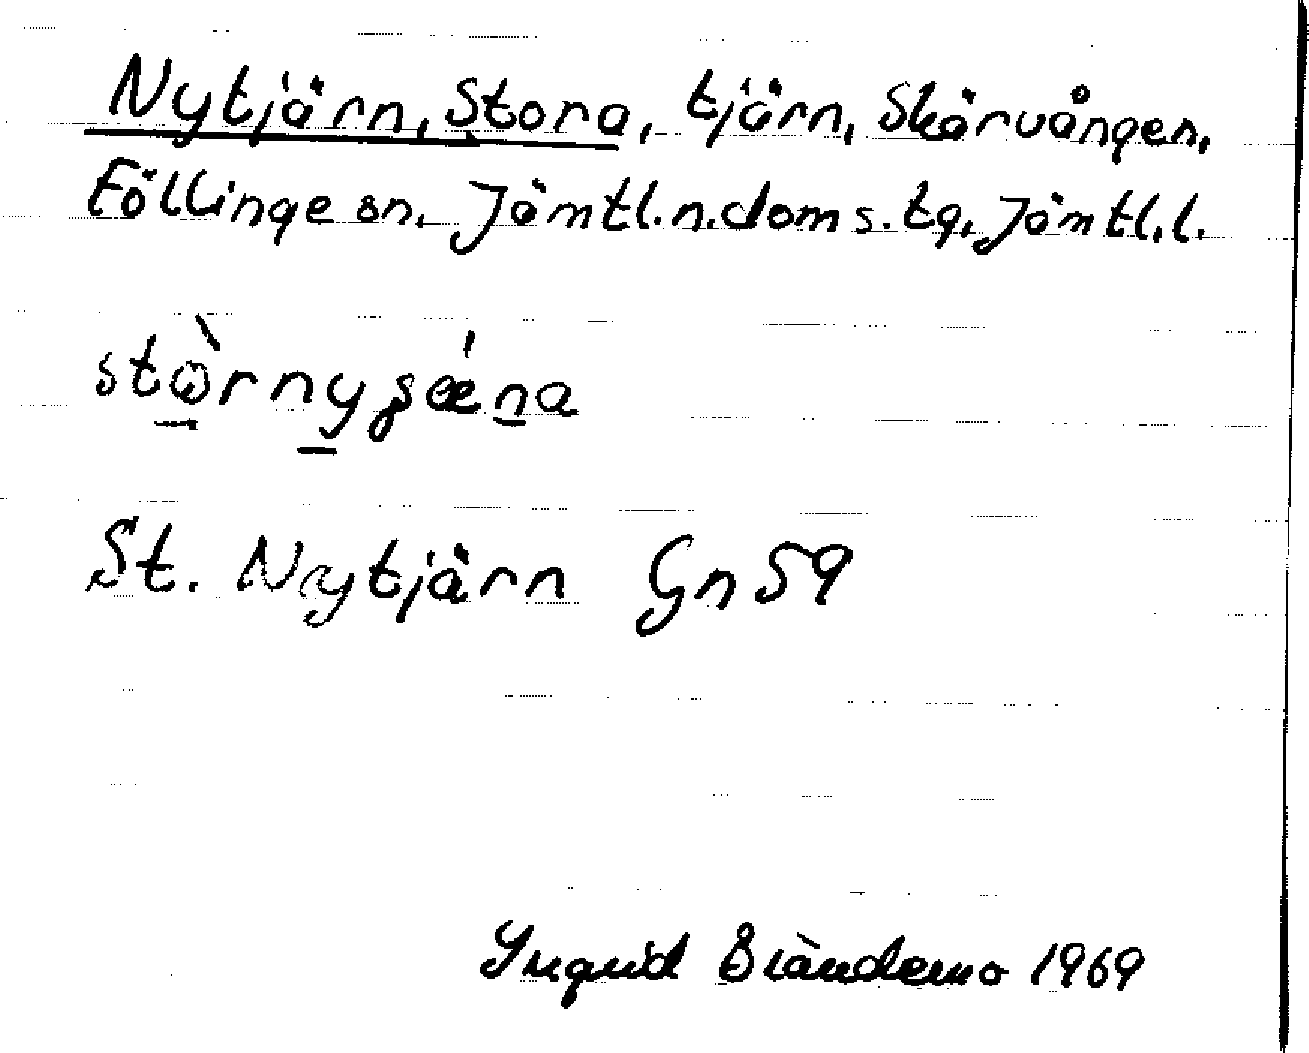 Nytjärn, Stora, tjärn, Skärvången,
Föllinge sn, Jämtl.n.doms.tg, Jämtl.l.
St. Nytjärn Gn 59
Ingrid 1969